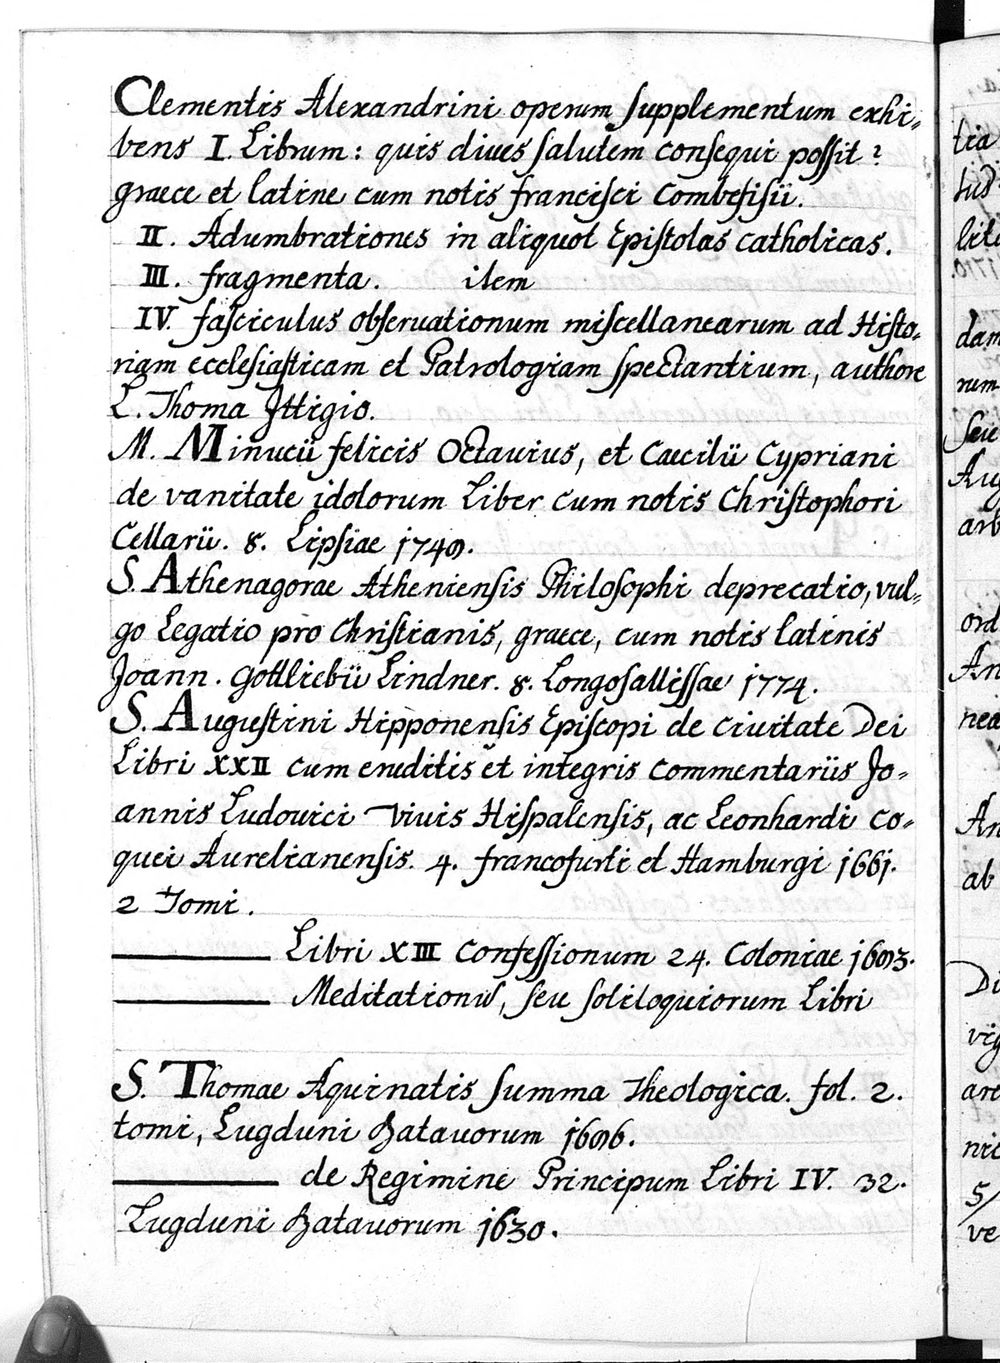 Clementis Alexandrini operum supplementum exhi-
bens I. Librum: quis diues salutem consequi possit?
graece et latine cum notis francisci Combefisii.
II. Adumbrationes in aliquot Epistolas catholicas.
III. fragmenta. item
IV. fasciculus obseruationum miscellanearum ad Histo-
riam ecclesiasticam et Patrologiam spectantium, authore
L. Thoma Ittigio.
M. Minucii felicis Octauius, et Caecilii Cypriani
de vanitate idolorum Liber cum notis Christophori
Cellarii. 8. Lipsiae 1749.
S. Athenagorae Atheniensis Philosophi deprecatio, vul-
go Legatio pro Christianis, graece, cum notis latinis
Joann. Gottliebii Lindner. 8. Longosalissae 1774.
S. Augustini Hipponensis Episcopi de ciuitate Dei
Libri XXII cum eruditis et integris commentariis Jo-
annis Ludouici Viuis Hispalensis, ac Leonhardi Co-
quei Aurelianensis. 4. francofurti et Hamburgi 1661.
2 Tomi.
Libri XIII Confessionum 24. Coloniae 1693.
Meditationū, seu soliloquiorum Libri
S. Thomae Aquinatis summa Theologica. fol. 2.
tomi, Lugduni Batauorum 1696.
de Regimine Principum Libri IV. 32.
Lugduni Batauorum 1630.